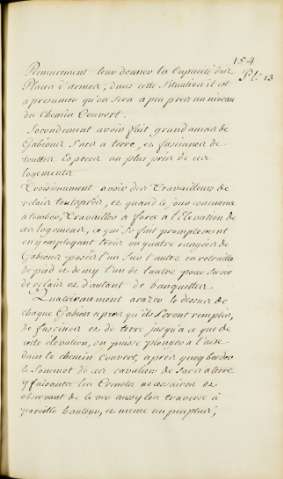 154
Pl. 13
Premierement leur donner la Capacité des
Places d'armes, dans cette Situation il est
a presumer qu'on sera a peu pres au niveau
du Chemin Couvert.
Secondement avoir fait, grand amas de
Gabions, Sacs a terre, et fascines de
touttes Especes au plus pres de ces
logements
Troisiemement avoir des Travailleurs de
relais tout prets, et quand le jour commence
a tomber, Travailler a force a l'Elevation de
ces logements, ce qui se fait promptement
en y employant trois ou quatre rangées de
Gabions posées l'un Sur l'autre en retraitte
de pied et demy l'un de l'autre pour Servir
de relais et d'autant de banquettes
Quatriemement arazer le dessus de
chaque Gabion apres qu'ils Seront remplis,
de fascines et de terre jusqu'a ce que de
cette elevation, on puisse plonger a l'aise
dans le chemin Couvert, apres quoy border
le Sommet de ces cavaliers de Sacs a terre
y faisant les Creneaux necessaires et
observant de le
aussy les traverses a
pareille hauteur, et meme un peu plus,